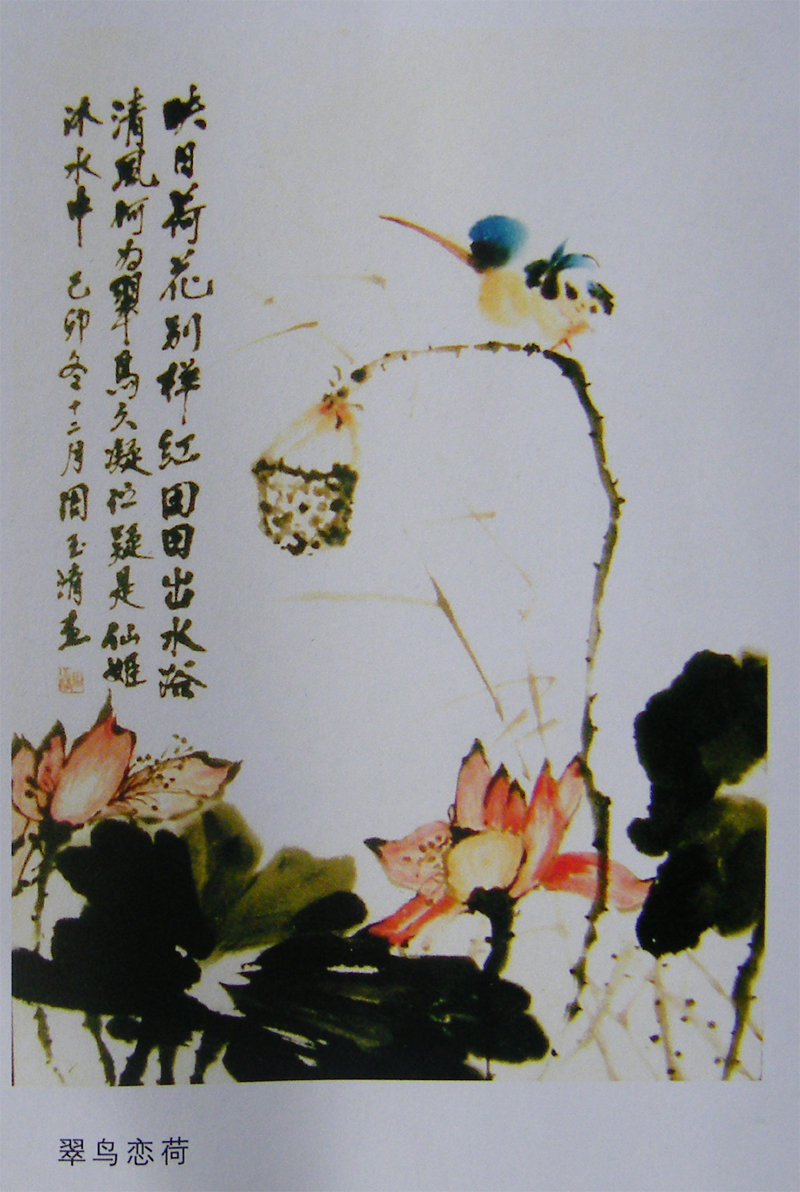 映日荷花别样红田田出水浴
清風何为翠鳥久凝伫疑是仙姬
沐水中 己卯冬十二月周玉清画
翠鸟恋荷